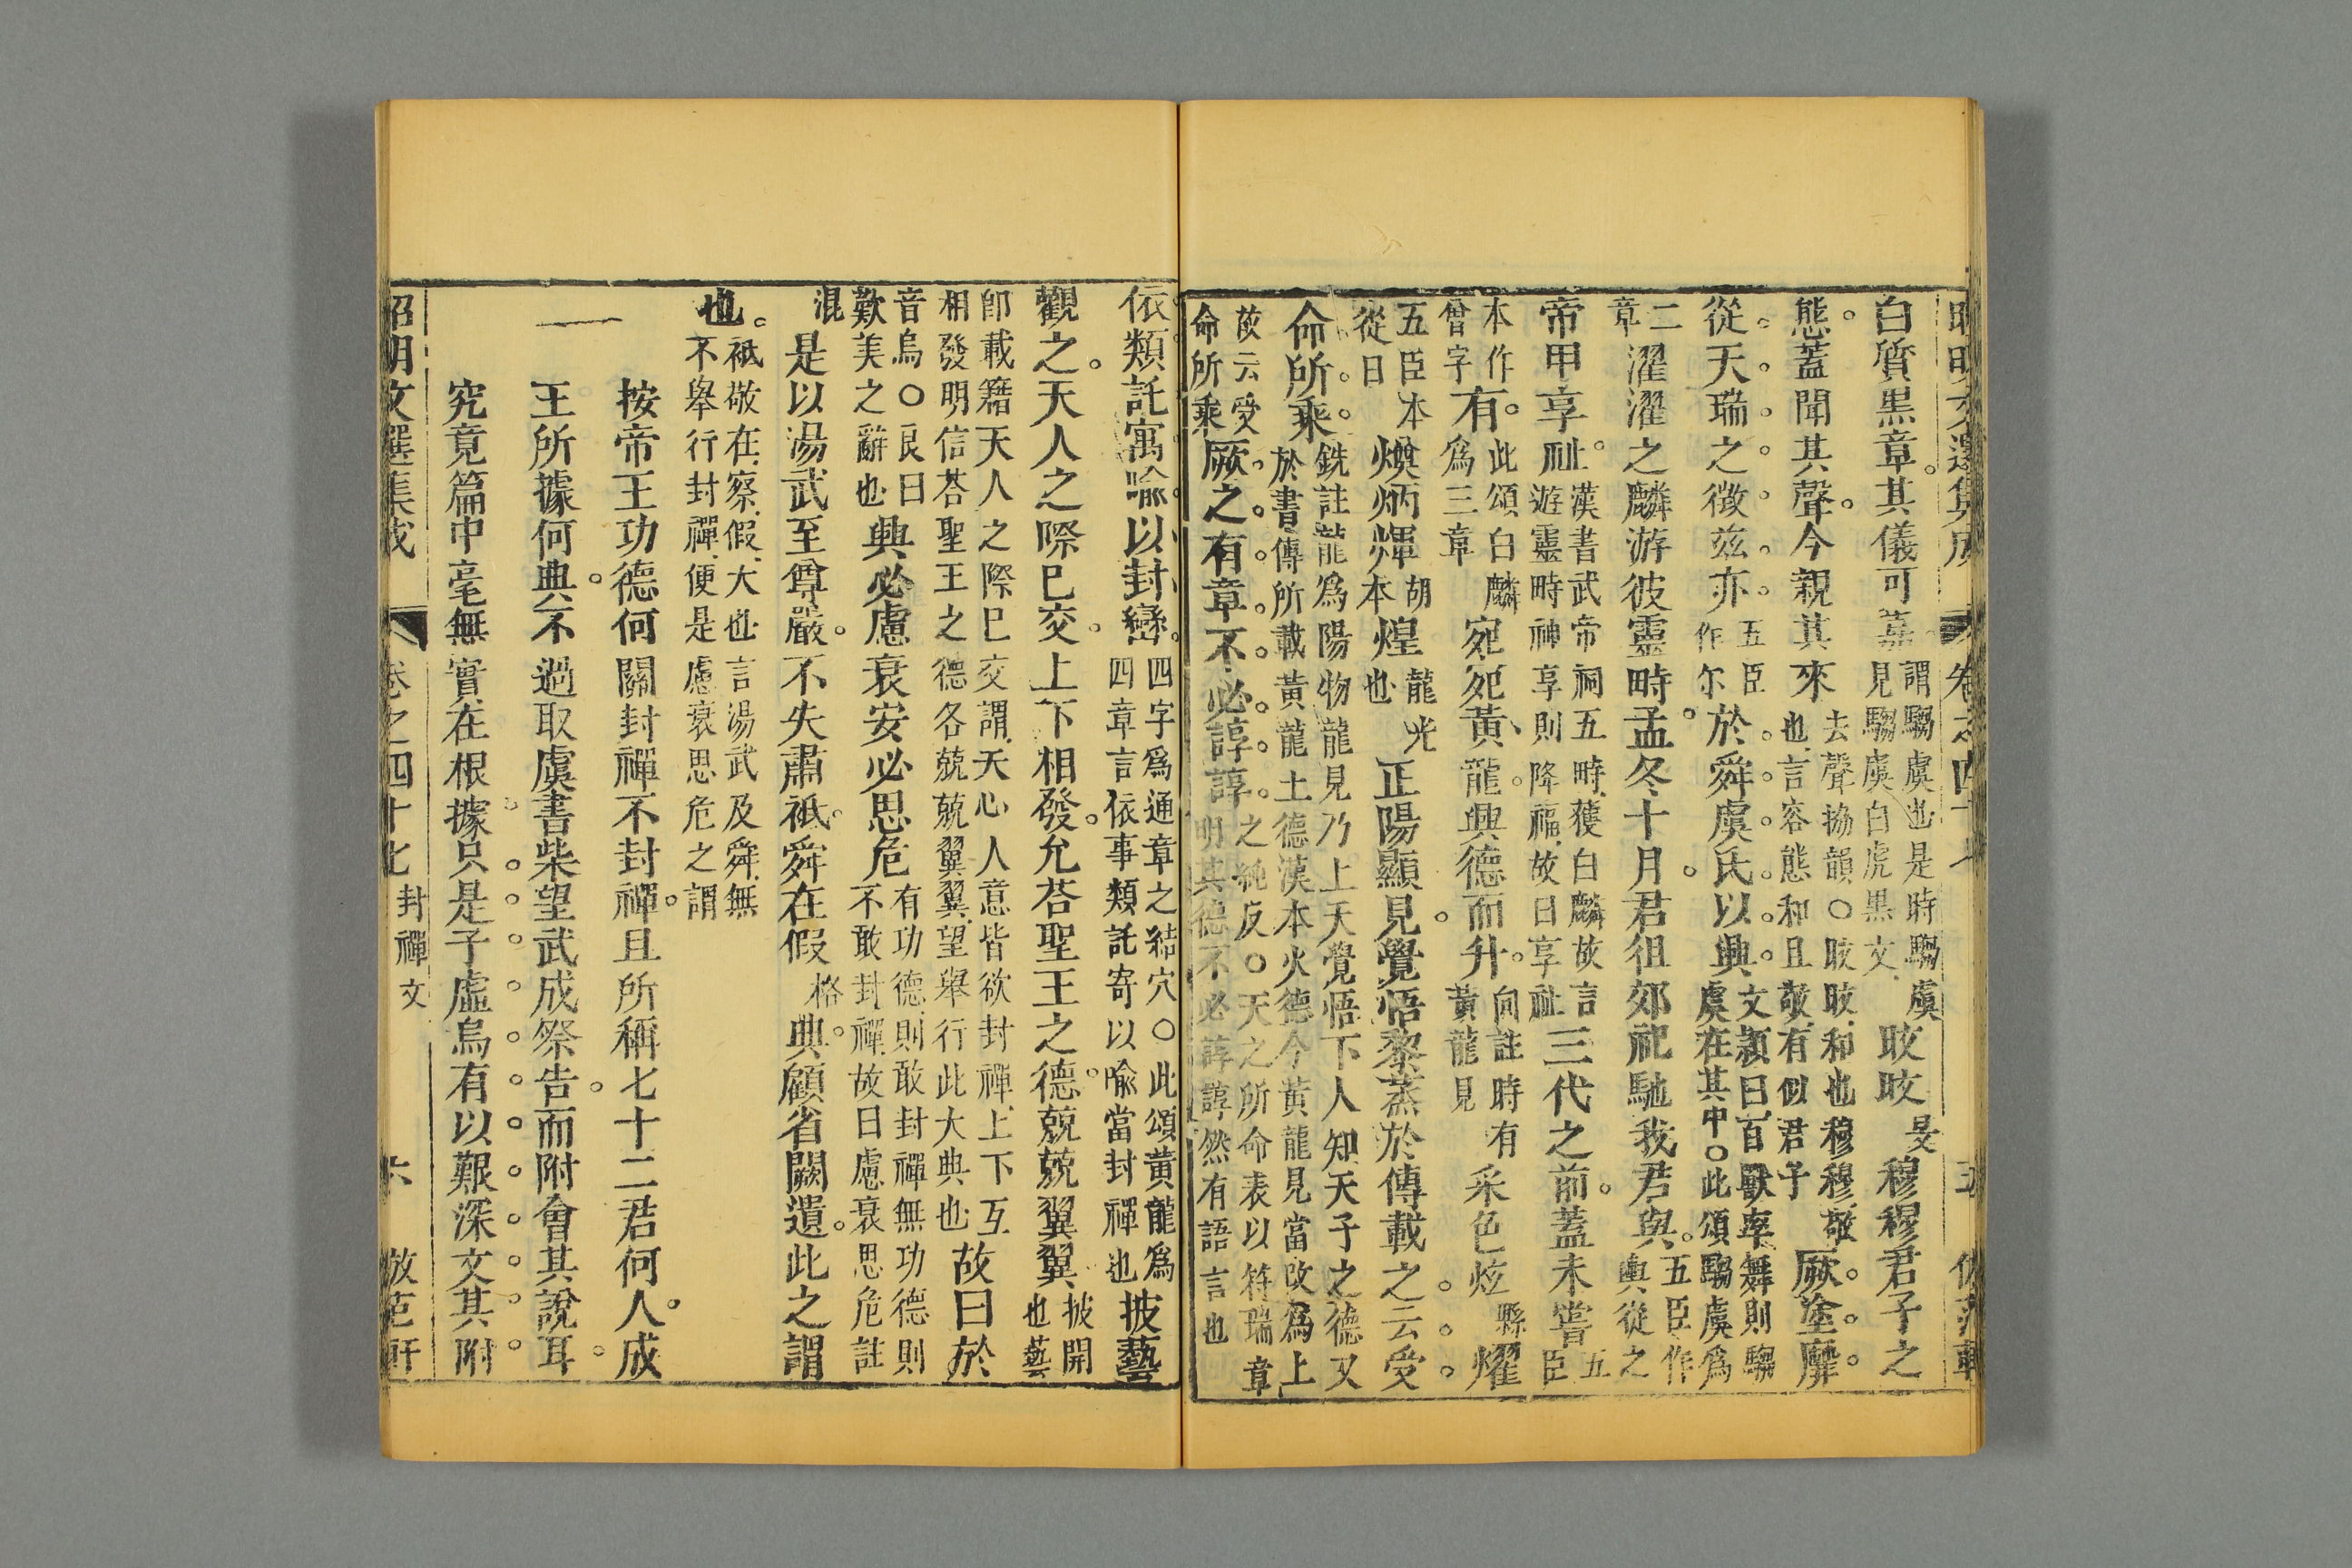 昭明文選集成 卷之四十七 五 倣范軒
白質黑章其儀可嘉 謂騶虞也是時騶虞 見騶虞白虎黑文 旼旼 旻 穆穆君子之
態蓋聞其聲今親其來 去聲協韻○旼旼和也穆穆敬 也言容態和且敬有似君子 厥塗靡
從天瑞之徵茲亦 五臣 作尔 於舜虞氏以興 文穎曰百獸率舞則騶 虞在其中○此頌騶虞爲
二 章 濯濯之麟游彼靈畤孟冬十月君徂郊祀馳我君輿 五臣作 輿從之
帝甲享祉 漢書武帝祠五畤獲白麟故言 遊靈畤神享則降福故曰享祉 三代之前蓋未嘗 五 臣
本作 曾字 有 此頌白麟 爲三章 宛宛黃龍興德而升 向註時有 黃龍見 采色炫 縣 燿
五臣本 從日 煥炳煇 胡 本 煌 龍光 也 正陽顯見覺悟黎蒸於傳載之云受
命所乘 銑註龍爲陽物龍見乃上天覺悟下人知天子之德又 於書傳所載黃龍土德漢本火德今黃龍見當改爲上
故云受 命所乘 厥之有章不必諄諄 之純反○天之所命表以符瑞章 明其德不必諄諄然有語言也
依類託寓喻以封巒 四字爲通章之結穴○此頌黃龍爲 四章言依事類託寄以喻當封禪也 披藝
觀之天人之際已交上下相發允荅聖王之德兢兢翼翼 披開 也藝
卽載籍天人之際已交謂天心人意皆欲封禪上下互 相發明信荅聖王之德各兢兢翼翼望舉行此大典也 故曰於
音烏○良曰 歎美之辭也 興必慮衰安必思危 有功德則敢封禪無功德則 不敢封禪故曰慮衰思危註
混 是以湯武至尊嚴不失肅祗舜在假 格 典顧省闕遺此之謂
也 祗敬在察假大也言湯武及舜無 不舉行封禪便是慮衰思危之謂
按帝王功德何關封禪不封禪且所稱七十二君何人成
王所據何典不過取虞書柴望武成祭告而附會其說耳
究竟篇中毫無實在根據只是子虛烏有以艱深文其附
昭明文選集成 卷之四十七 封禪文 六 倣范軒